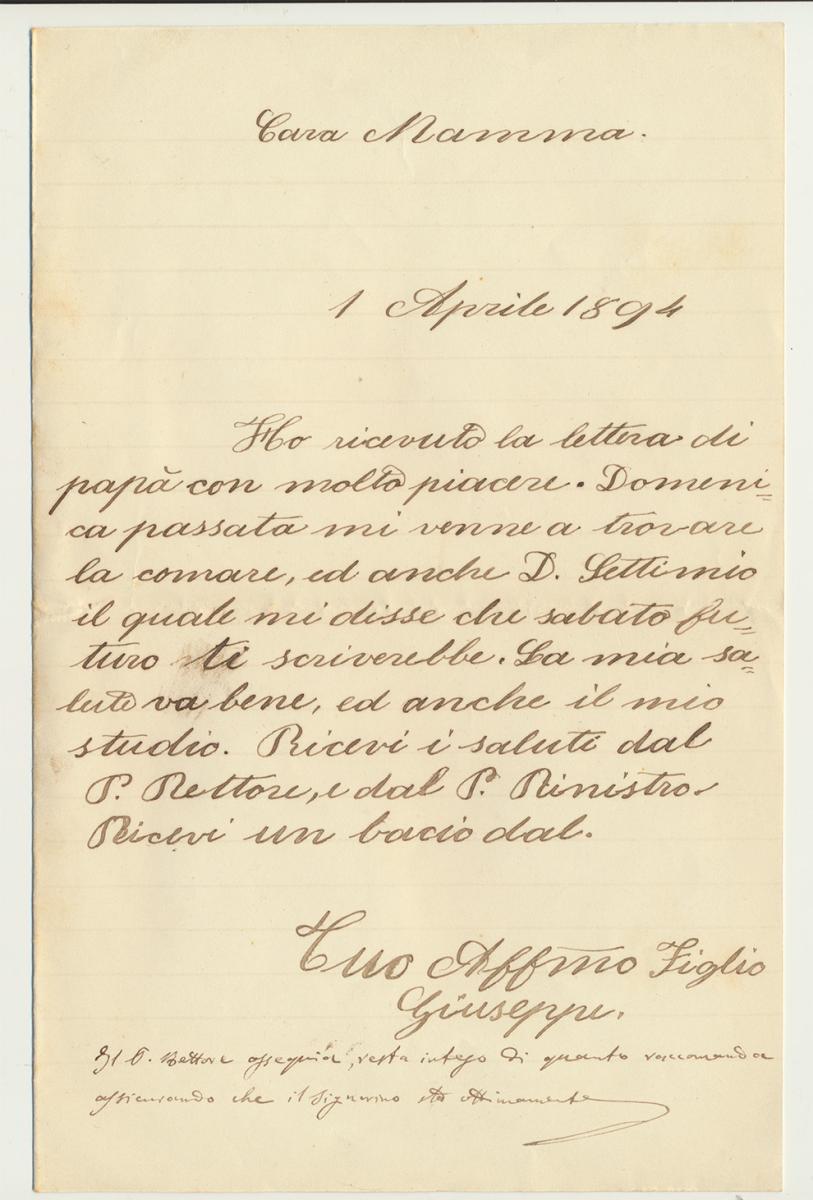 Cara Mamma.
1 Aprile 1894
Ho ricevuto la lettera di
papà con molto piacere. Domeni=
ca passata mi venne a trovare
la comare, ed anche D. Settimio
il quale mi disse che sabato fu=
turo ti scriverebbe. La mia sa=
lute va bene, ed anche il mio
studio. Ricevi i saluti dal
P. Rettore, e dal P. Ministro.
Ricevi un bacio dal.
Tuo Affmo Figlio
Giuseppe.
Il P. Rettore ossequia, resta inteso di quanto raccomanda
assicurando che il Signorino sta ottimamente